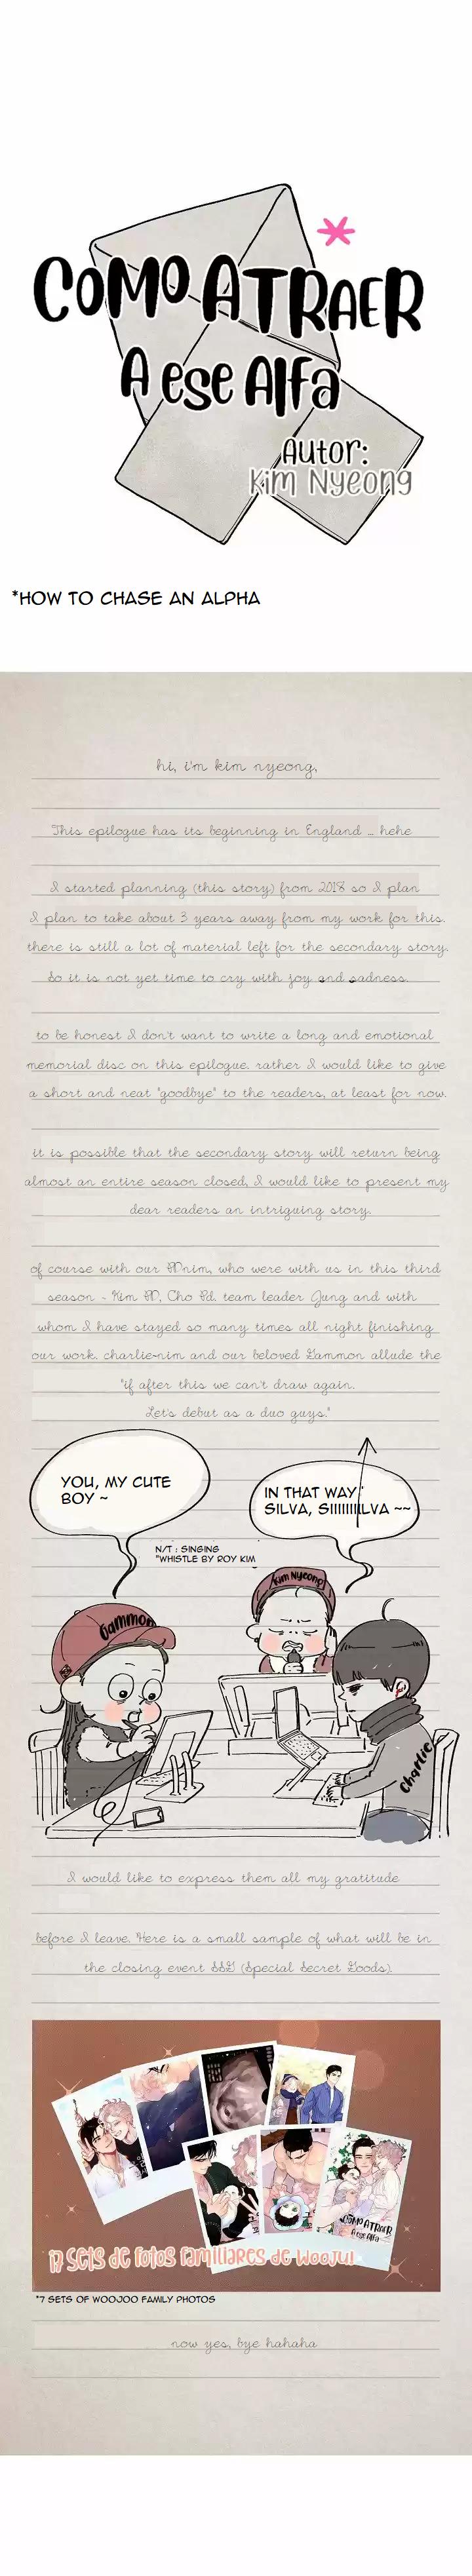 COMO ATRAER
A ese Alfa
Autor:
Kim Nyeong
*HOW TO CHASE AN ALPHA
hi, i'm kim nyeong,
This epilogue has its beginning in England ... hehe
I started planning (this story) from 2018 so I plan
I plan to take about 3 years away from my work for this.
there is still a lot of material left for the secondary story.
So it is not yet time to cry with joy and sadness.
to be honest I don't want to write a long and emotional
memorial disc on this epilogue. rather I would like to give
a short and neat "goodbye" to the readers, at least for now.
it is possible that the secondary story will return being
almost an entire season closed, I would like to present my
dear readers an intriguing story.
of course with our PDnim, who were with us in this third
season - Kim PD, Cho Pd. team leader Jung and with
whom I have stayed so many times all night finishing
our work. charlie-nim and our beloved Gammon allude the
"if after this we can't draw again.
Let's debut as a duo guys."
YOU, MY CUTE
BOY ~
IN THAT WAY
SILVA, SIIIIIIILVA ~~
N/T : SINGING
"WHISTLE BY ROY KIM
Kim Nyeong
Gammon
Charlie
I would like to express them all my gratitude
before I leave. "Here is a small sample of what will be in
the closing event SSG (Special Secret Goods).
COMO ATRAER
A ese Alfa
17 sets de fotos familiares de Wooju!
*7 SETS OF WOOJOO FAMILY PHOTOS
now yes, bye hahaha